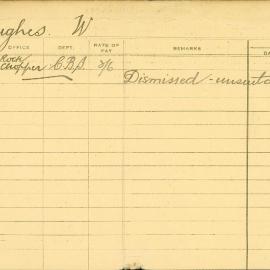 ughes. W
OFFICE DEPT. RATE OF PAY REMARKS DA
Rock Chopper C.B.S. 8/6 Dismissed - unsuita